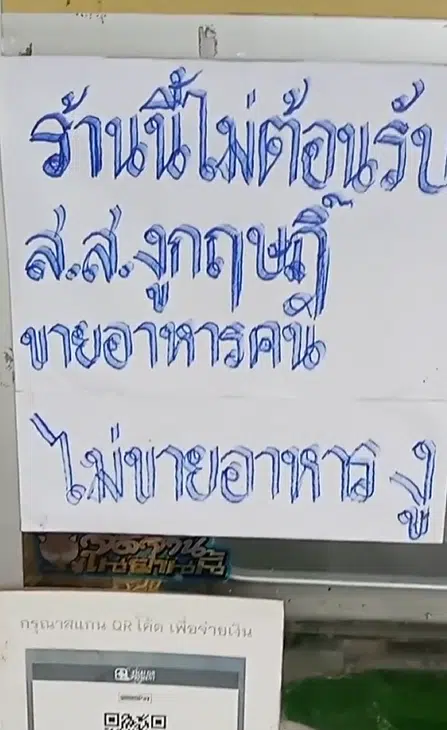 ร้านนี้ไม่ต้อนรับ
ส.ส.งูกฤษฎิ์
ขายอาหารคน
ไม่ขายอาหาร งู
กรุณาสแกน QR โค้ด เพื่อจ่ายเงิน